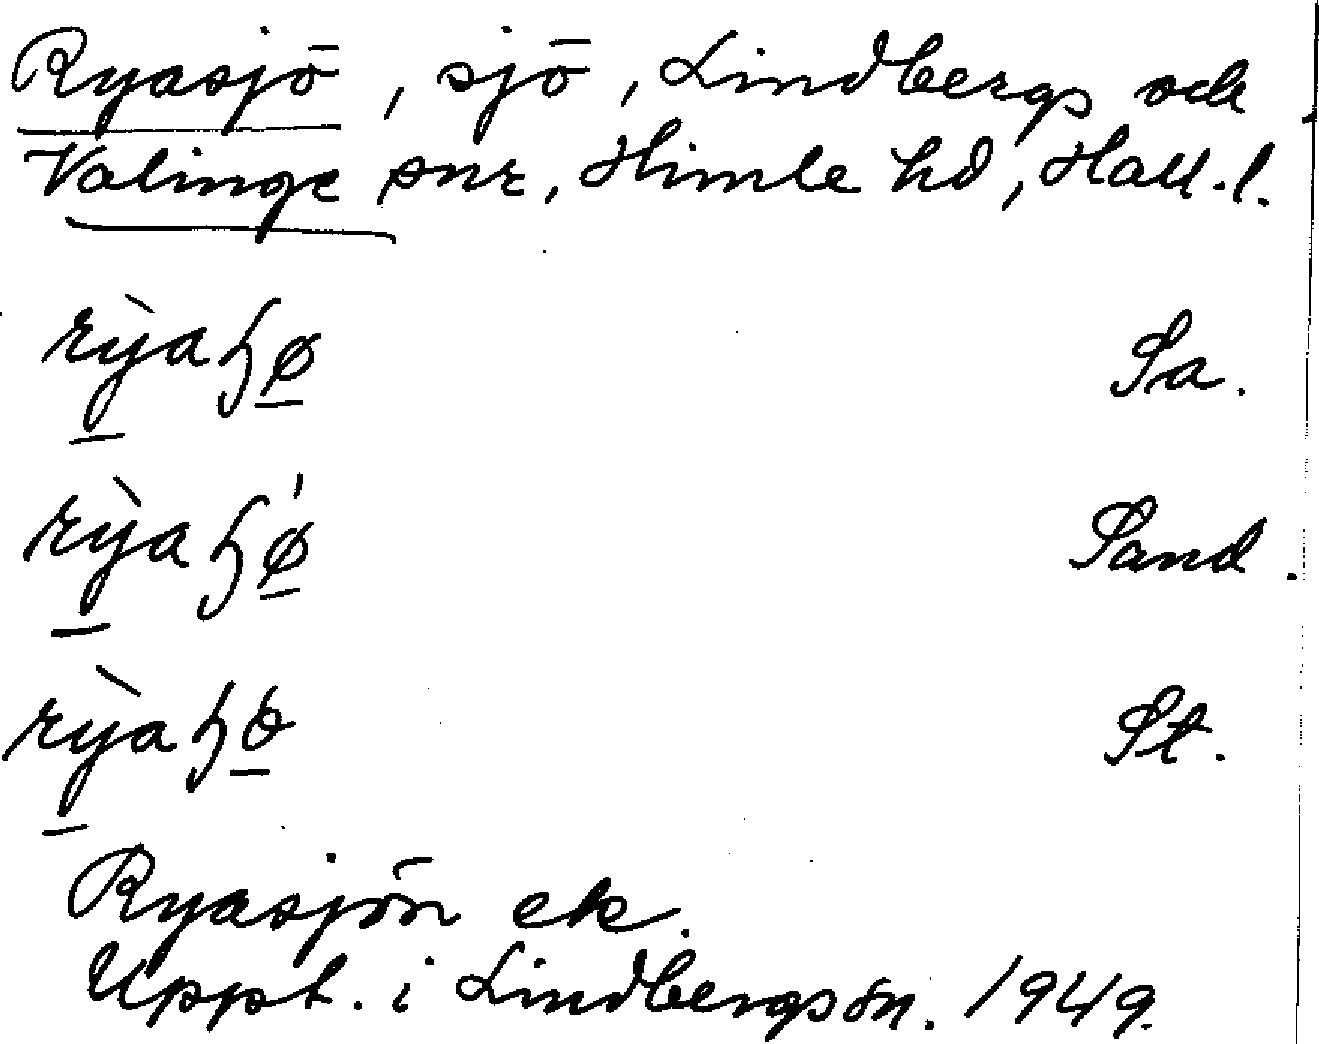 Ryasjö, sjö, Lindbergs och
Valinge snr, Himle hd, Hall. l.
rỳaɧø Sa.
rỳaɧø̍ Sand.
rỳaɧ St.
Ryasjön ek.
Uppt. i Lindbergs sn. 1949.